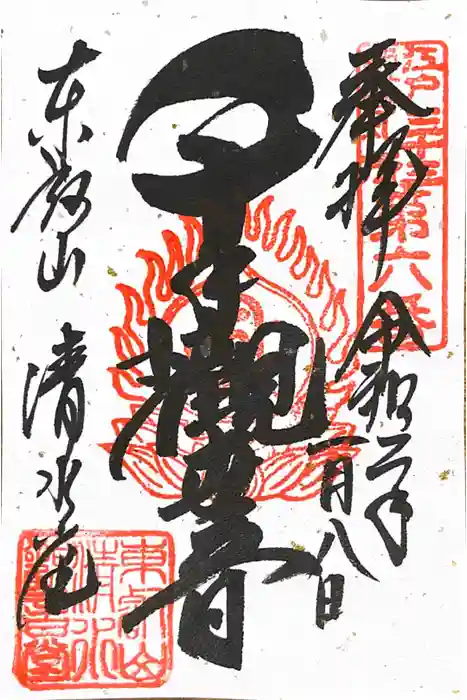 奉拝
令和二年
一月八日
千手観世音
東叡山 清水堂
第六番
東叡山
清水
觀音堂